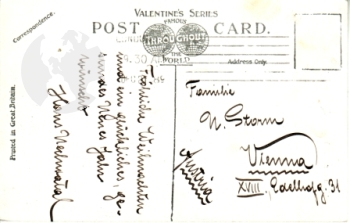 VALENTINE'S SERIES
FAMOUS
THROUGHOUT
THE
WORLD
POST CARD.
Correspondence.
Address Only.
Printed in Great Britain.
Fröhliche Weihnachten
und ein glückliches, ge-
sundes Neues Jahr
wünscht
Hans
Familie
N. Storm
Vienna
XVIII, Edelhofg. 31
Austria